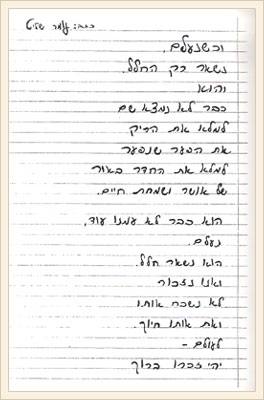 כתב: עומר שויט
וכשנעלם,
נשאר רק החלל.
והוא
כבר לא נמצא שם
למלא את הריק
את הפער שנפער
למלא את החדר באור
של אושר ושמחת חיים.
הוא כבר לא עמנו עוד,
נעלם.
הוא נשאר חלל.
ואנו נזכור
לא נשכח אותו
ואת אותו חיוך.
לעולם –
יהי זכרו ברוך